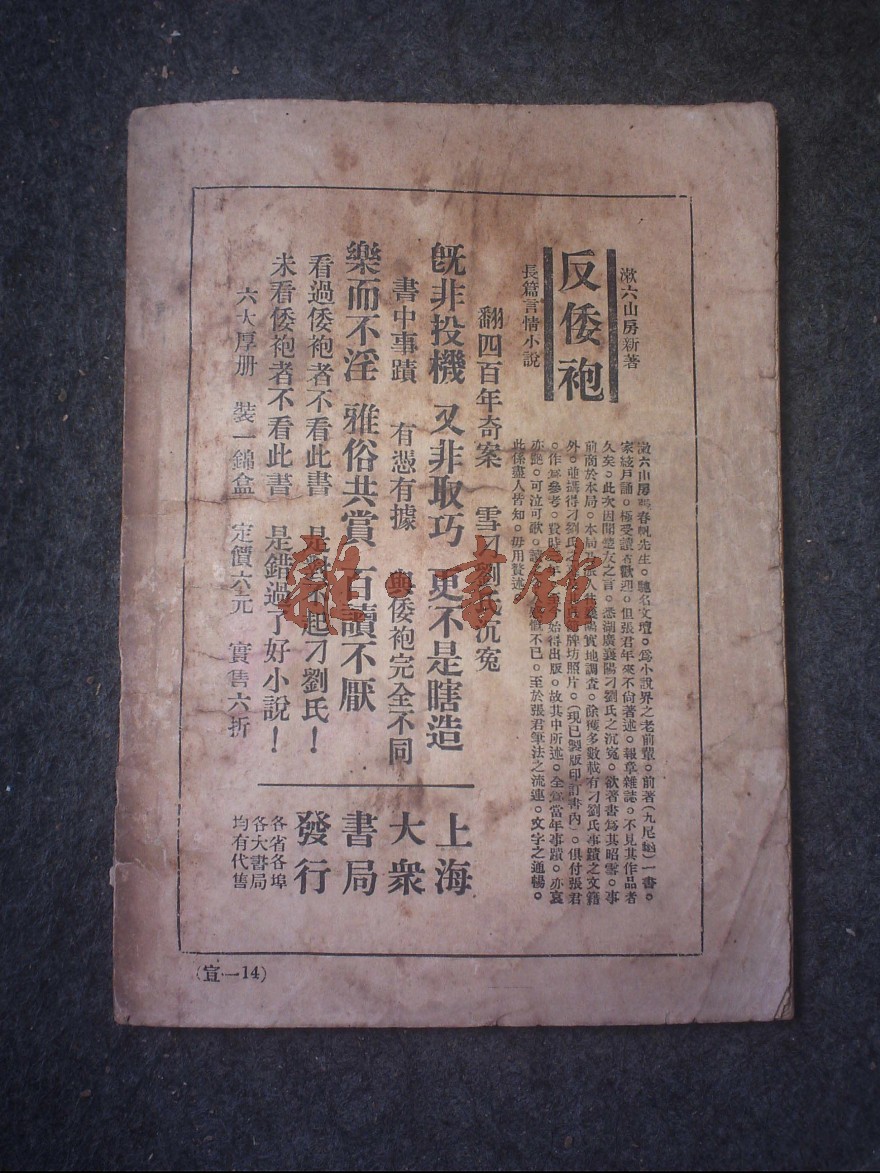 漱六山房新著
反倭袍
長篇言情小說
漱六山房張春帆先生。馳名文壇。爲小說界之老前輩。前著(九尾龜)一書。
家絃戶誦。極受讀者歡迎。但張君年來不尙著述。報章雜誌。不見其作品者
久矣。此次因聞楚友之言。悉湖廣襄陽刁劉氏之沉寃。欲著書爲其昭雪。事
前商於本局。本局 襄陽實地調査。除獲多數載有刁劉氏事蹟之文籍
外。並攝得刁劉氏之 牌坊照片。(現已製版印訂書內)。俱付張君
。作爲參考。 始得出版。故其中所述。全爲當年事蹟。亦哀
亦艷。可泣可歌。 不已。至於張君筆法之流連。文字之通暢。
此係盡人皆知。毋用贅述
翻四百年奇案 雪刁劉氏沉寃
旣非投機 又非取巧 更不是瞎造
書中事蹟 有憑有據 與倭袍完全不同
樂而不淫 雅俗共賞 百讀不厭
看過倭袍者不看此書 是對不起刁劉氏!
未看倭袍者不看此書 是錯過了好小說!
六大厚册 裝一錦盒 定價六元 實售六折
上海
大衆
書局
發行
各省各埠
各大書局
均有代售
(宣一14)
雜·書館